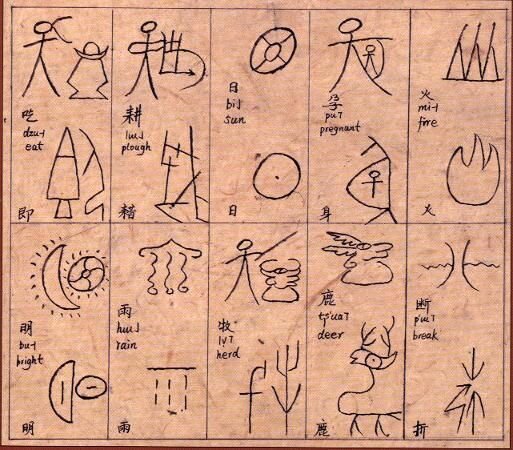 吃
dzɯ˧
eat
即
耕
lɯ˩
plough
耤
日
bi˩
sun
日
孕
pu˥
pregnant
身
火
mi˧
fire
火
明
bu˧
bright
明
雨
hɯ˩
rain
雨
牧
ly˥
herd
鹿
tʂ'ua˥
deer
鹿
断
p'ɯ˥
break
折